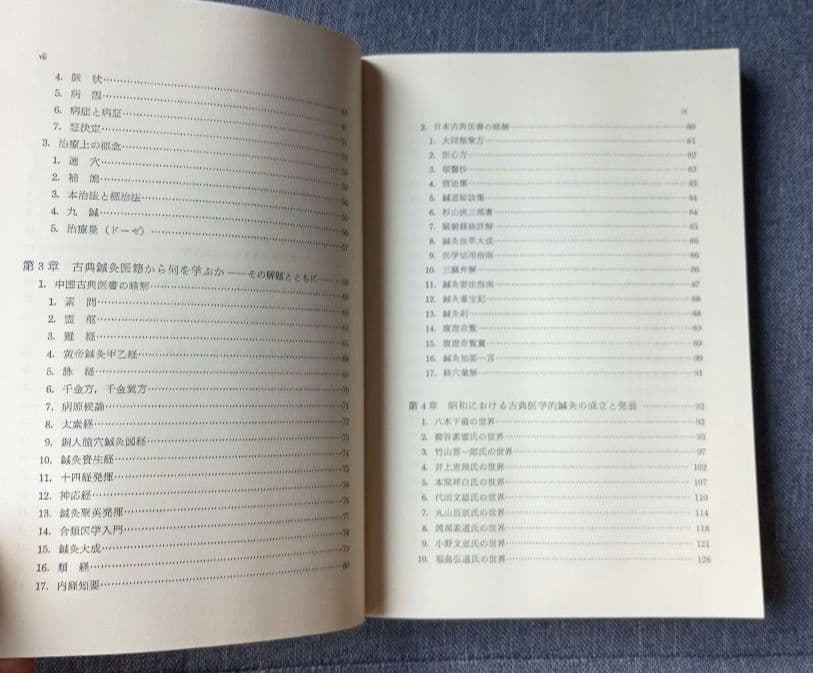 viii
4. 脈 状
5. 病 因
6. 病症と病証
7. 証決定
3. 治療上の概念
1. 選 穴
2. 補 瀉
3. 本治法と標治法
4. 九 鍼
5. 治療量(ドーゼ) 57
第3章 古典鍼灸医籍から何を学ぶか——その解題とともに
1. 中国古典医書の略解
1. 素 問
2. 霊 枢
3. 難 経
4. 黄帝鍼灸甲乙経
5. 脉 経
6. 千金方,千金翼方
7. 病原候論 71
8. 太素経 72
9. 銅人腧穴鍼灸図経 73
10. 鍼灸資生経 74
11. 十四経発揮 75
12. 神応経 76
13. 鍼灸聚英発揮 77
14. 合類医学入門 78
15. 鍼灸大成 79
16. 類 経 80
17. 内経知要
ix
2. 日本古典医書の略解 80
1. 大同類聚方 81
2. 医心方 82
3. 頓醫抄 83
4. 啓迪集 84
5. 鍼道秘訣集 84
6. 杉山流三部書 84
7. 臓腑経絡詳解 85
8. 鍼灸抜萃大成 86
9. 医学切用指南 86
10. 三臓弁解 86
11. 鍼灸要法指南 87
12. 鍼灸重宝記 88
13. 鍼灸則 88
14. 腹證奇覧 89
15. 腹證奇覧翼 89
16. 鍼灸知要一言 90
17. 経穴彙解 91
第4章 昭和における古典医学的鍼灸の成立と発展 92
1. 八木下翁の世界 92
2. 柳谷素霊氏の世界 93
3. 竹山晋一郎氏の世界 97
4. 井上恵理氏の世界 102
5. 本間祥白氏の世界 107
6. 代田文誌氏の世界 110
7. 丸山昌朗氏の世界 114
8. 岡部素道氏の世界 118
9. 小野文恵氏の世界 121
10. 福島弘道氏の世界 126